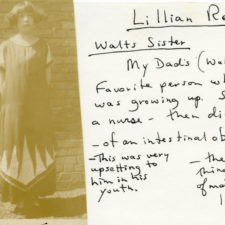 Lillian
Walts Sister
My Dad's
Favorite person
was growing up.
a nurse - then
- of an intestinal
- This was very
upsetting to
him in his
youth.
- the
of